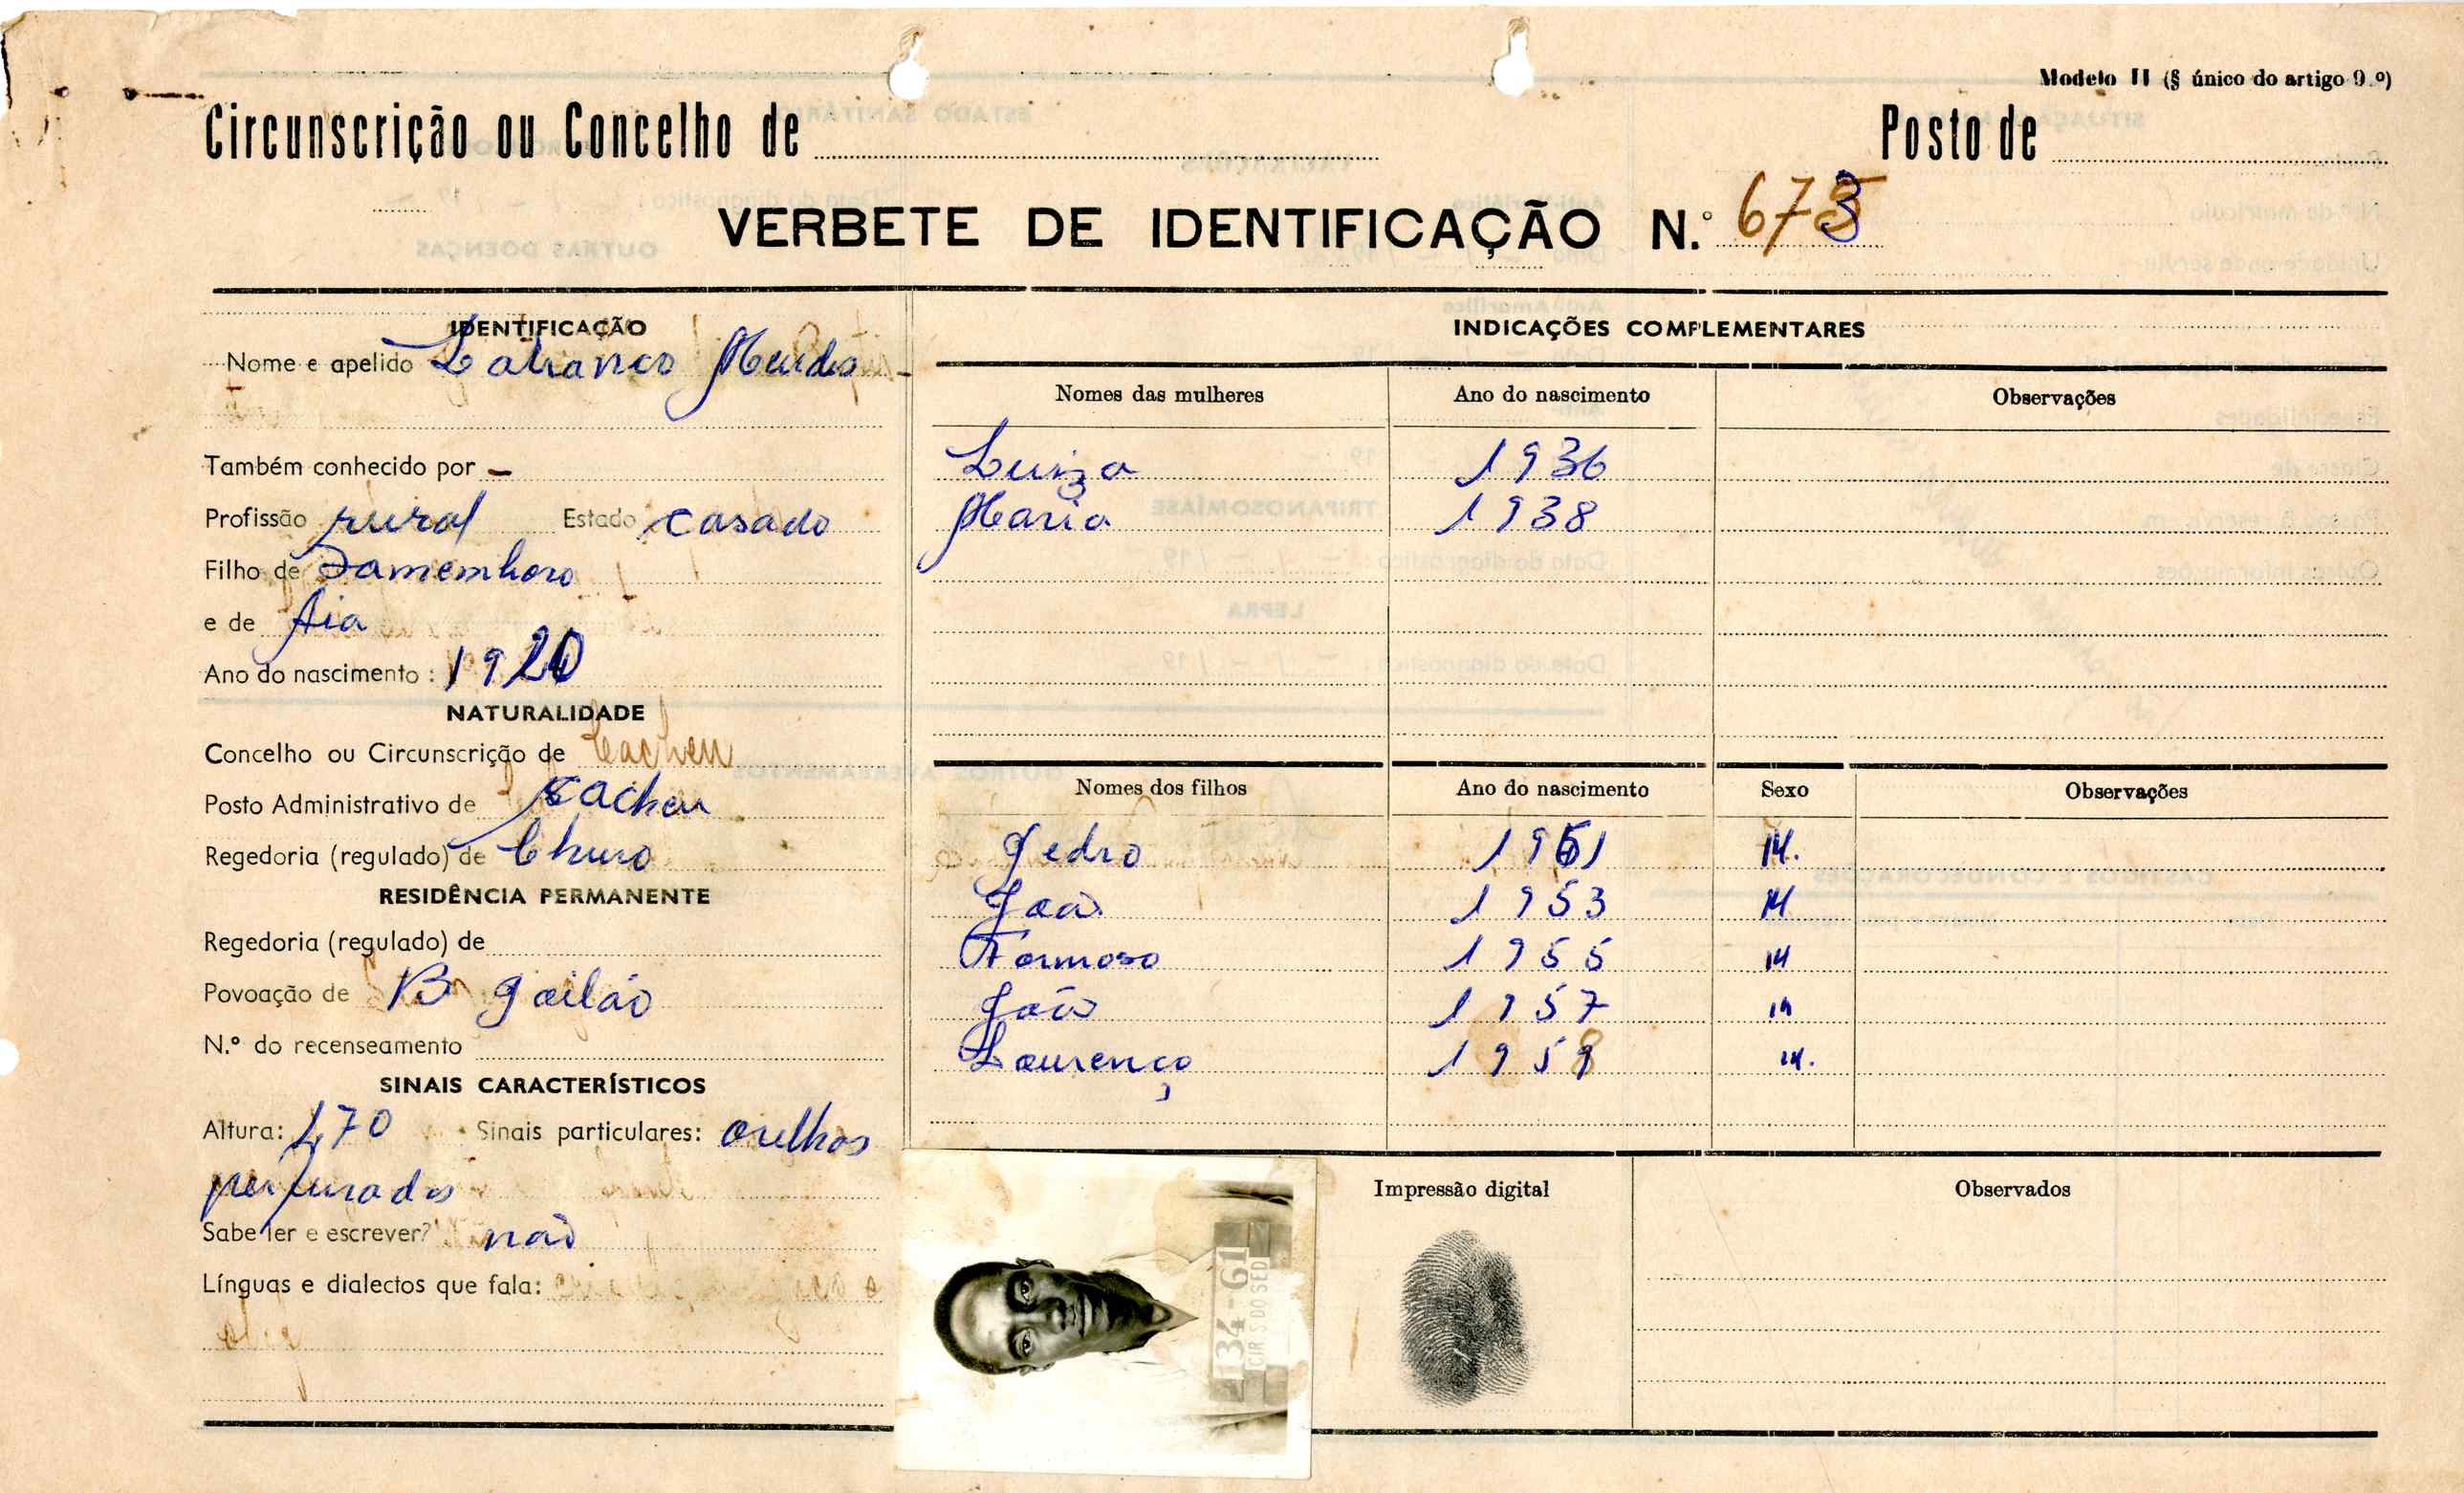 Modelo II (§ único do artigo 9.º)
Circunscrição ou Concelho de
Posto de
VERBETE DE IDENTIFICAÇÃO N.º 673
IDENTIFICAÇÃO
Nome e apelido Mendes
Também conhecido por -
Profissão rural Estado casado
Filho de
e de Aia
Ano do nascimento: 1920
NATURALIDADE
Concelho ou Circunscrição de Cacheu
Posto Administrativo de Cacheu
Regedoria (regulado) de Churo
RESIDÊNCIA PERMANENTE
Regedoria (regulado) de
Povoação de B
N.º do recenseamento
SINAIS CARACTERÍSTICOS
Altura: 1,70 Sinais particulares: orelhas
perfurados
Sabe ler e escrever? não
Línguas e dialectos que fala:
INDICAÇÕES COMPLEMENTARES
Nomes das mulheres Ano do nascimento Observações
Luiza 1936
Maria 1938
Nomes dos filhos Ano do nascimento Sexo Observações
Pedro 1951 M.
João 1953 M
Formoso 1955 M
João 1957 M
Lourenço 1959 M.
134-61
CIR S DOSEDI
Impressão digital
Observados